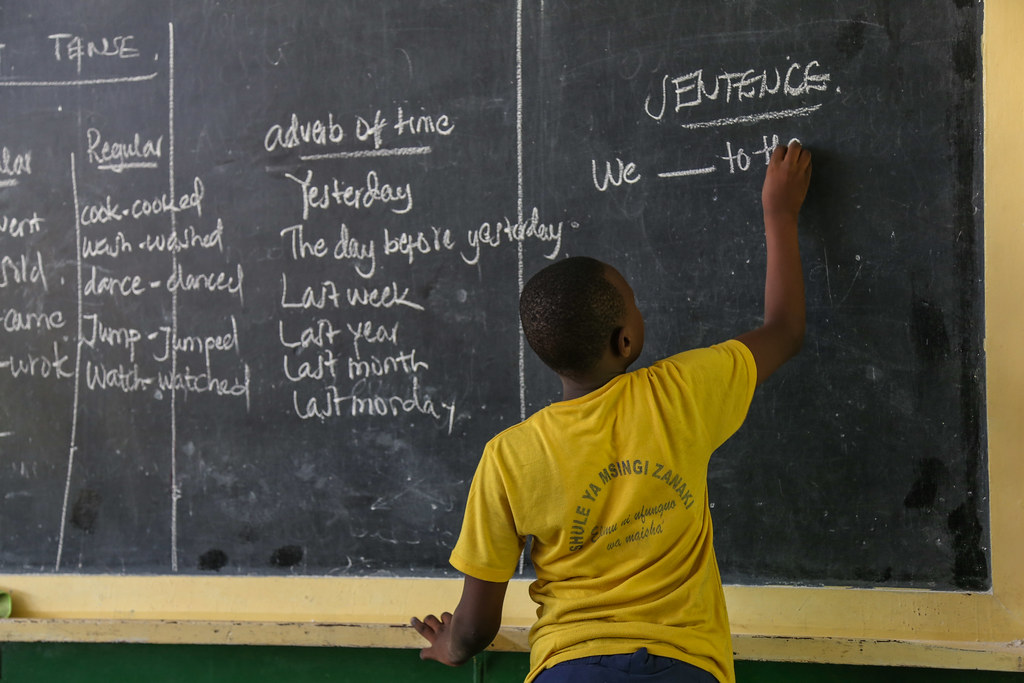 TENSE.
Regular
cook-cooked
wash-washed
dance-danced
Jump-Jumped
Watch-watched
went
sold.
came
wrok
adverb of time
Yesterday
The day before yesterday.
Last week
Last year
Last month
Last monday
SENTENCE.
We ___ to the
SHULE YA MSINGI ZANAKI
Elimu ni ufunguo
wa maisha